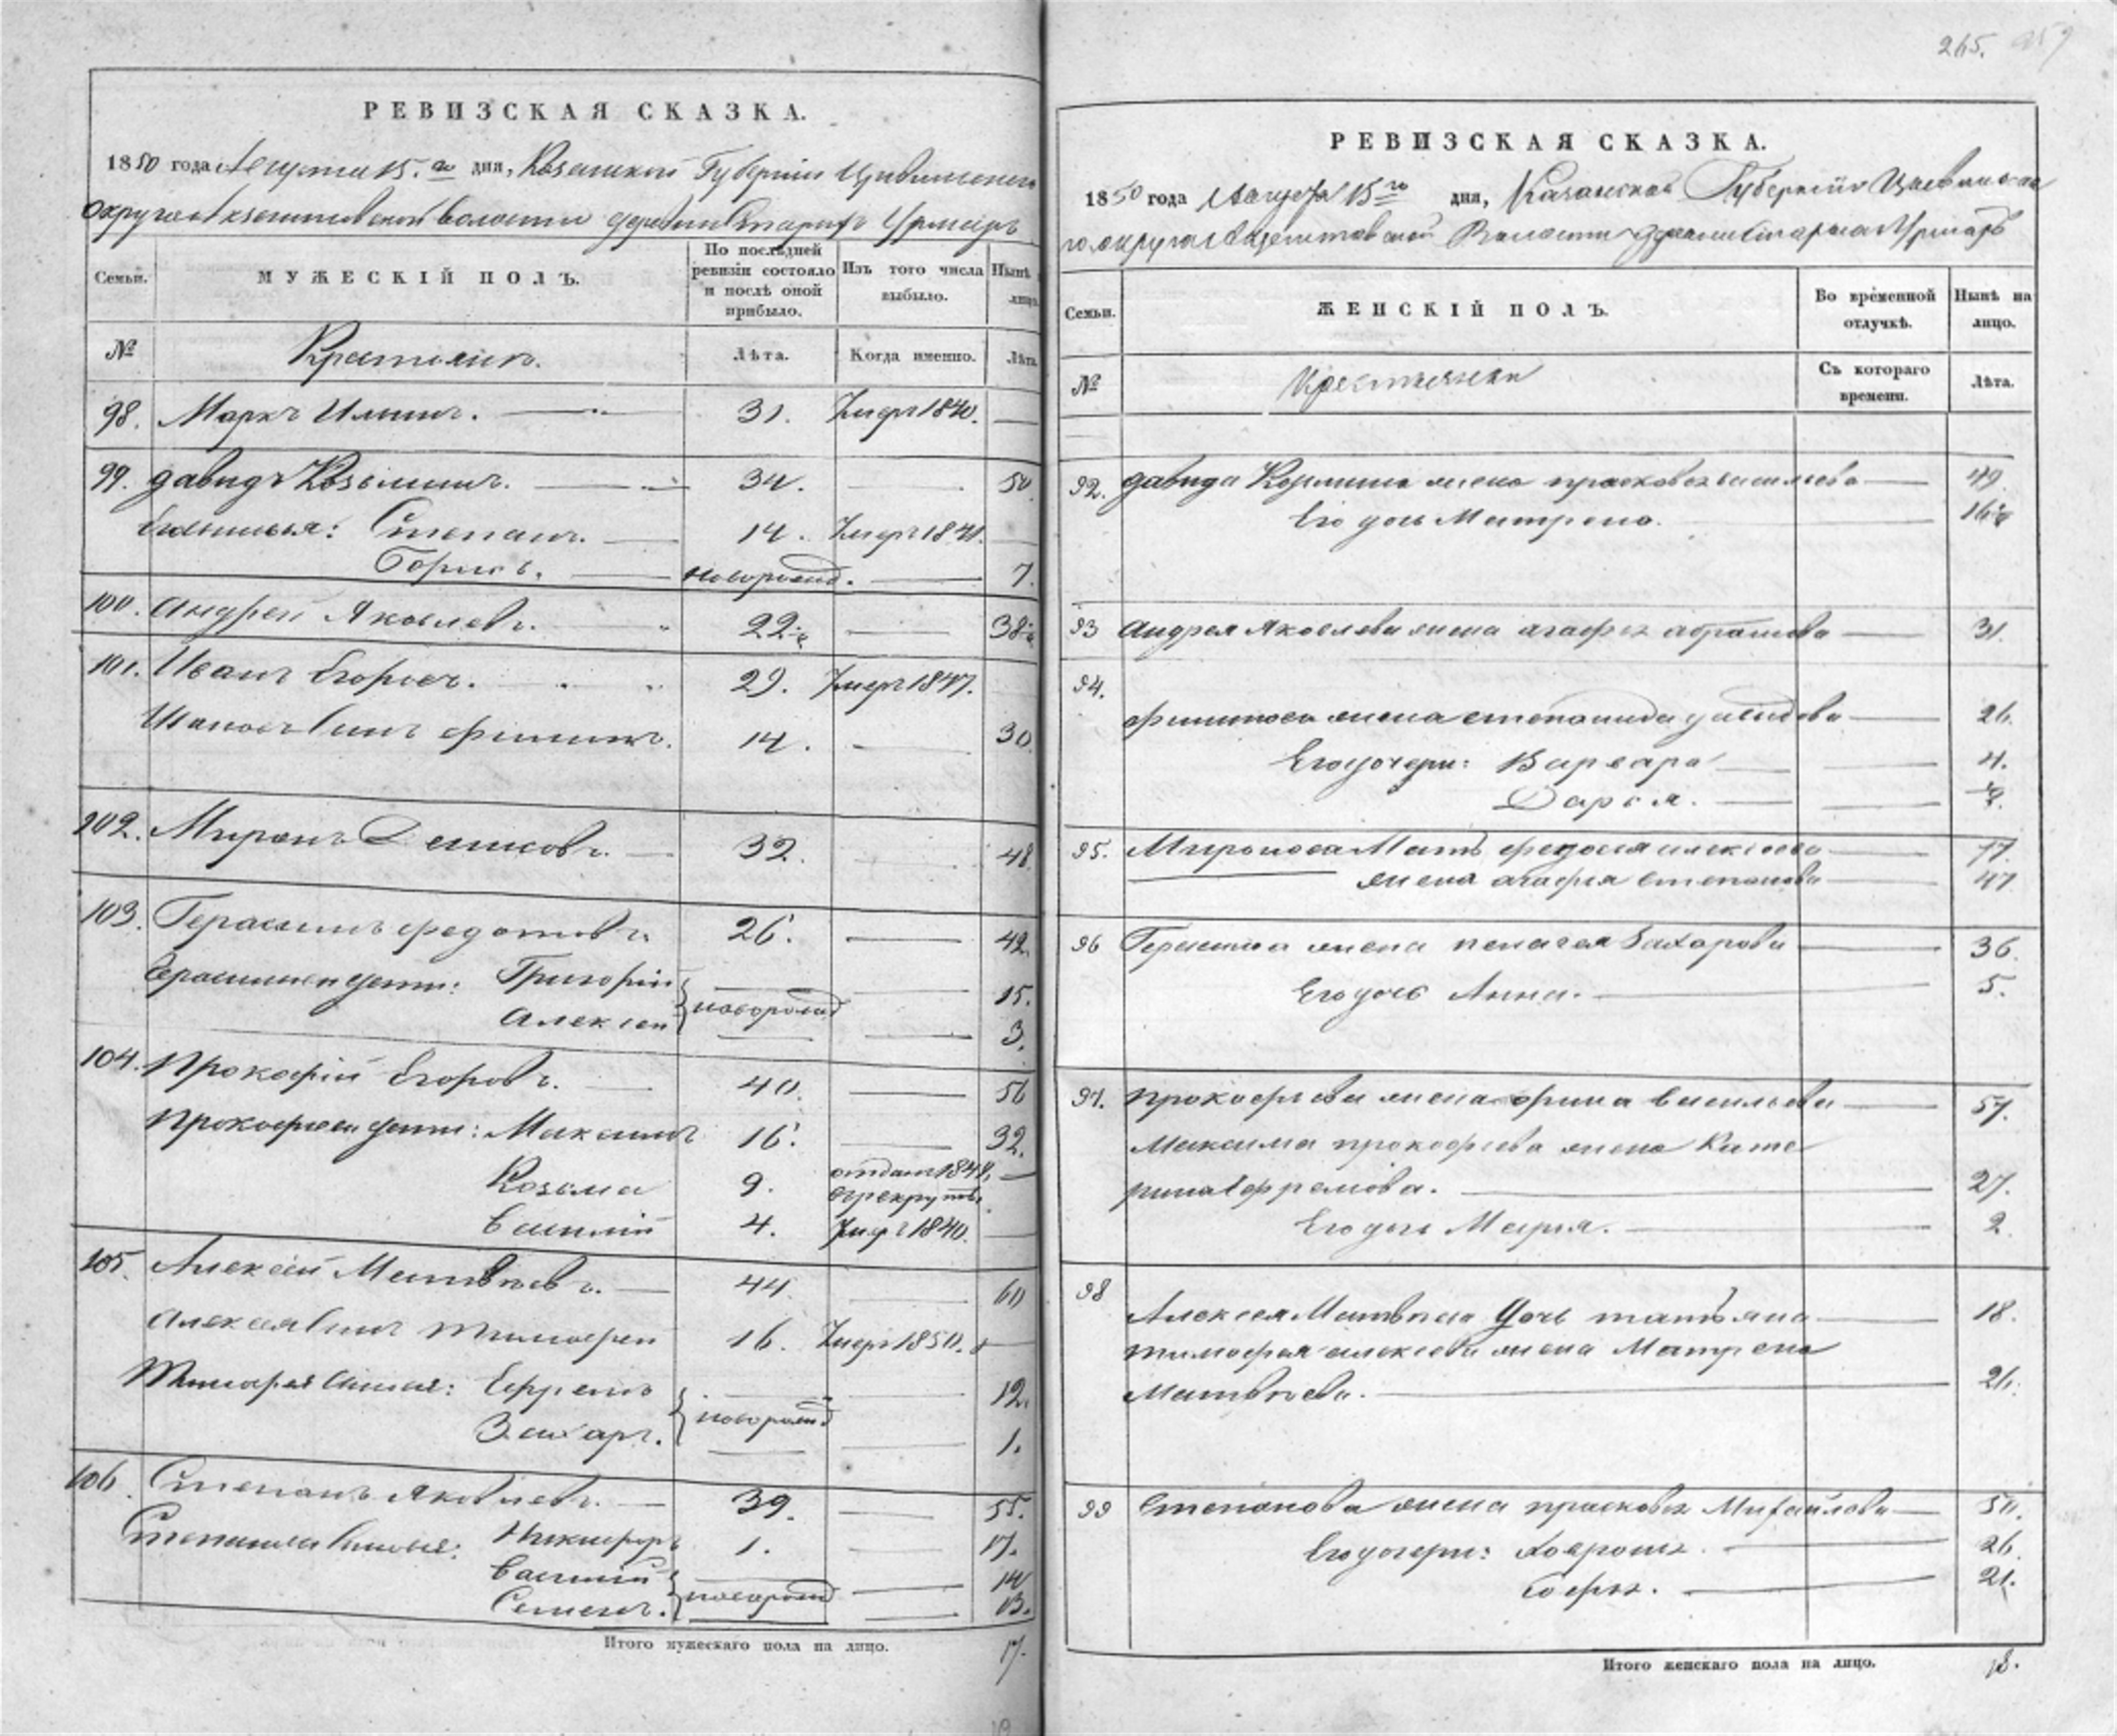 265.
РЕВИЗСКАЯ СКАЗКА.
1850 года Августа 15.го дня, Казанской Губернiи Цивильскаго
округа волости деревни Старыхъ Урмаръ
Семьи.
МУЖЕСКIЙ ПОЛЪ.
По послѣдней ревизiи состояло и послѣ оной прибыло.
Изъ того числа выбыло.
Нынѣ на лицо.
№
Крестьянъ.
Лѣта.
Когда именно.
Лѣта.
98. Маркъ Ильинъ. 31. Умеръ 1840.
99. Давидъ Козьминъ. 34. 50
Сыновья: Степанъ. 14. Умеръ 1841.
Борисъ. новорожд. 7.
100. Андрей Яковлевъ. 22½ 38½
101. Иванъ Егоровъ. 29. Умеръ 1847.
Ивановъ Сынъ Филипъ. 14. 30
102. Миронъ Денисовъ. 32. 48
103. Герасимъ Федотовъ 26. 42.
Герасимовы дети: Григорiй 15.
Алексей новорожд 3.
104. Прокофiй Егоровъ. 40. 56
Прокофьевы дети: Максимъ 16. 32.
Козьма 9. отданъ 1848 в рекруты.
Василiй 4. Умеръ 1840.
105. Алексей Матвѣевъ. 44. 60
Алексея Сынъ Тимофей 16. Умеръ 1850.
Тимофея Сыновья: Ефремъ 12.
Захаръ. новорожд 1.
106. Степанъ Яковлевъ. 39. 55.
Степана Сыновья: Никифоръ 1. 17.
Василiй 14
Семенъ. новорожд 13.
Итого мужескаго пола на лицо. 17.
РЕВИЗСКАЯ СКАЗКА.
1850 года Августа 15го дня, Казанской Губернiи Цивильска-
го округа Волости деревни Старыхъ Урмаръ
Семьи.
ЖЕНСКIЙ ПОЛЪ.
Во временной отлучкѣ.
Нынѣ на лицо.
№
Крестьянки
Съ котораго времени.
Лѣта.
92. Давида Козмина жена Прасковья Васильева 49.
Его дочь Матрена. 16½
93 Андрея Яковлева жена Агафья Абрамова 31.
94.
Филипова жена Степанида Давидова 26.
Его дочери: Варвара 4.
Дарья.
95. Миронова Мать Федосья Алексеева 77.
жена Агафья Степанова 47
96 Герасима жена Пелагея Захарова 36.
Его дочь Анна. 5.
97. Прокофьева жена Орина Васильева 57.
Максима Прокофьева жена Кате-
рина Ефремова. 27.
Его дочь Марья. 2.
98
Алексея Матвѣева Дочь Татьяна 18.
Тимофея Алексеева жена Матрена
Матвѣева. 26.
99 Степанова жена Прасковья Михайлова 50.
Его дочери: Ховронья. 26.
Софья. 21.
Итого женскаго пола на лицо. 18.